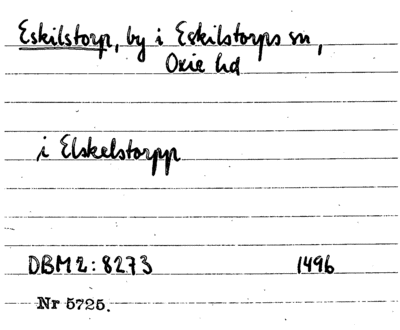 Eskilstorp, by i Eskilstorps sn,
Oxie hd
i Elskelstorpp
DBM 2:8273 1496
Nr 5725.